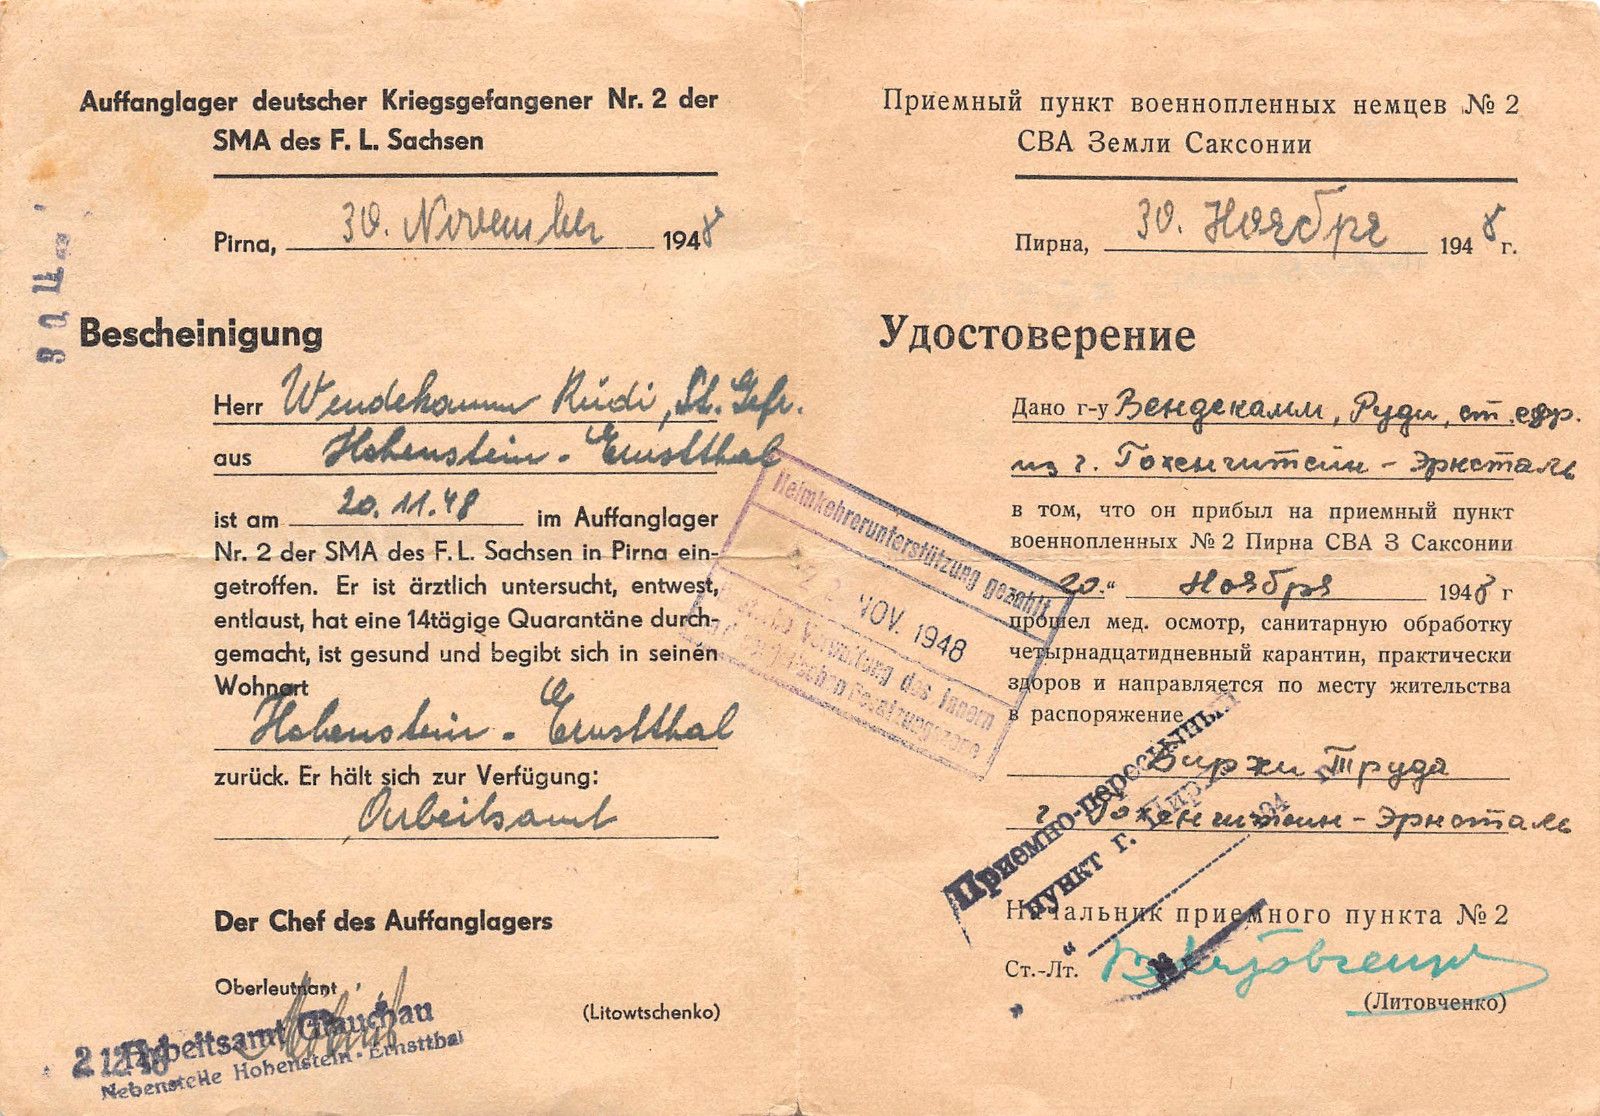 Auffanglager deutscher Kriegsgefangener Nr. 2 der
SMA des F. L. Sachsen
Pirna, 30. November 1948
30.11.
Bescheinigung
Herr Wendekamm Rudi, St. Gefr.
aus Hohenstein-Ernstthal
ist am 20.11.48 im Auffanglager
Nr. 2 der SMA des F. L. Sachsen in Pirna ein-
getroffen. Er ist ärztlich untersucht, entwest,
entlaust, hat eine 14tägige Quarantäne durch-
gemacht, ist gesund und begibt sich in seinen
Wohnort
Hohenstein-Ernstthal
zurück. Er hält sich zur Verfügung:
Arbeitsamt
Der Chef des Auffanglagers
Oberleutnant
(Litowtschenko)
2.12.48
Arbeitsamt Glauchau
Nebenstelle Hohenstein-Ernstthal
Heimkehrerunterstützung gezahlt
22 NOV. 1948
Verwaltung des Innern
Besatzungszone
Приемный пункт военнопленных немцев № 2
СВА Земли Саксонии
Пирна, 30. Ноября 1948 г.
Удостоверение
Дано г-у Вендекамм, Руди, ст. ефр.
из г. Гохенштейн-Эрнсталь
в том, что он прибыл на приемный пункт
военнопленных № 2 Пирна СВА З Саксонии
20.“ Ноября 1948 г
прошел мед. осмотр, санитарную обработку
четырнадцатидневный карантин, практически
здоров и направляется по месту жительства
в распоряжение
Биржи Труда
г. Гохенштейн-Эрнсталь
Приемно-пересыльный
пункт г. Пирна
194 г.
№
Начальник приемного пункта № 2
Ст.-Лт.
(Литовченко)